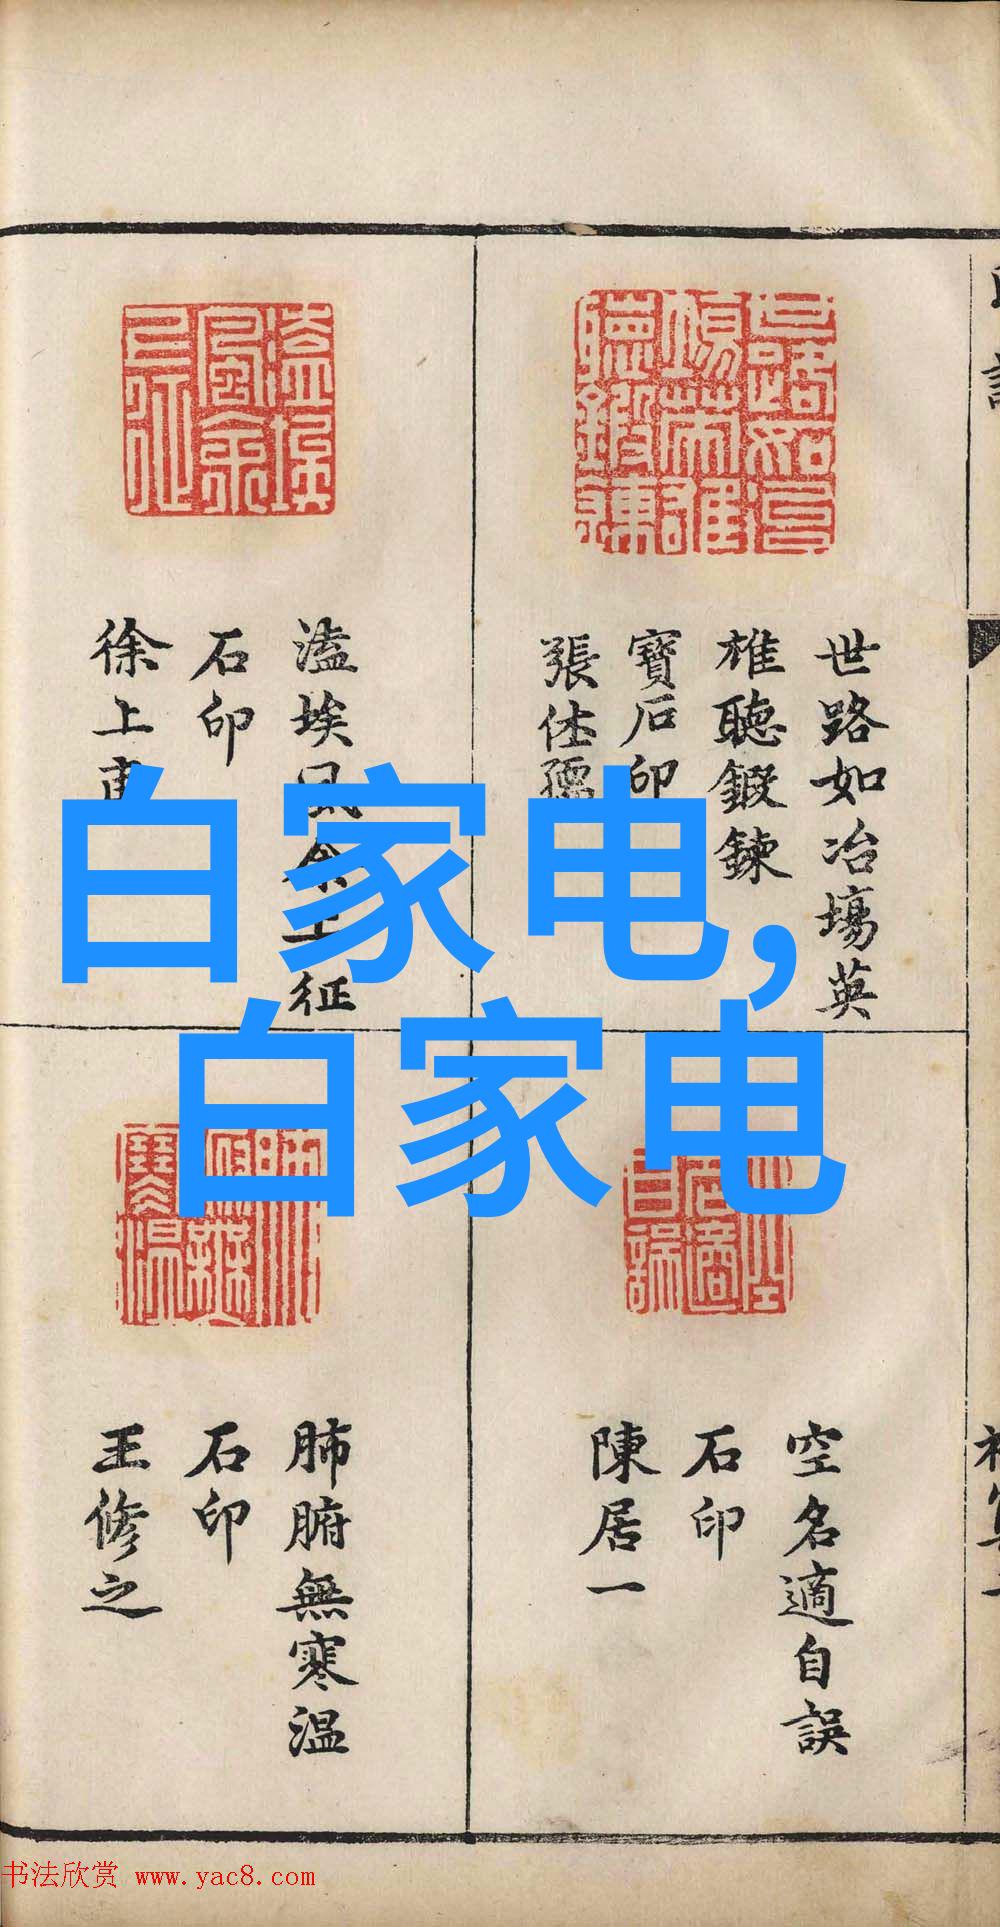 世路如冶塲英
雄聽鍛鍊
寶石印
張仕
溘埃風余上征
石印
徐上
白家电,
白家电
空名適自誤
石印
陳居一
肺腑無寒温
石印
王修之
书法欣赏 www.yac8.com